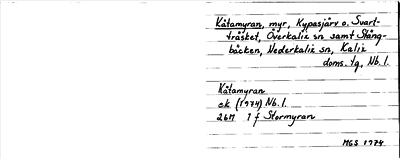 Kåtamyran, myr, Kypasjärv o. Svart-
träsket, Överkalix sn samt Stång-
bäcken, Nederkalix sn, Kalix
doms. tg, Nb. l.
Kåtamyran
ek (1974) Nb. l.
26M 1 f Stormyran
MGS 1974